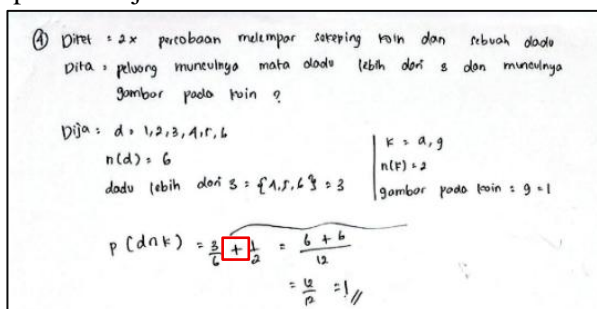 ④ Diket : 2x percobaan melempar sekeping koin dan sebuah dadu
Dita : peluang munculnya mata dadu lebih dari 3 dan munculnya
gambar pada koin ?
Dija : d = 1,2,3,4,5,6
n(d) = 6
dadu lebih dari 3 = {4,5,6} = 3
k = a, g
n(k) = 2
gambar pada koin = g = 1
p (d∩k) = 3/6 + 1/2 = 6 + 6 / 12
= 12/12 = 1 //